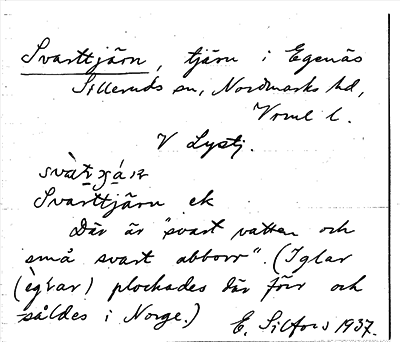 Svarttjärn, tjärn i Egenäs
Silleruds sn, Nordmarks hd,
Vrml l.
V Lystj.
Svarttjärn ek
Där är "svart vatten och
små svart abborr". (Iglar
(ìglar) plockades där förr och
såldes i Norge.)
E. Silfors 1937.